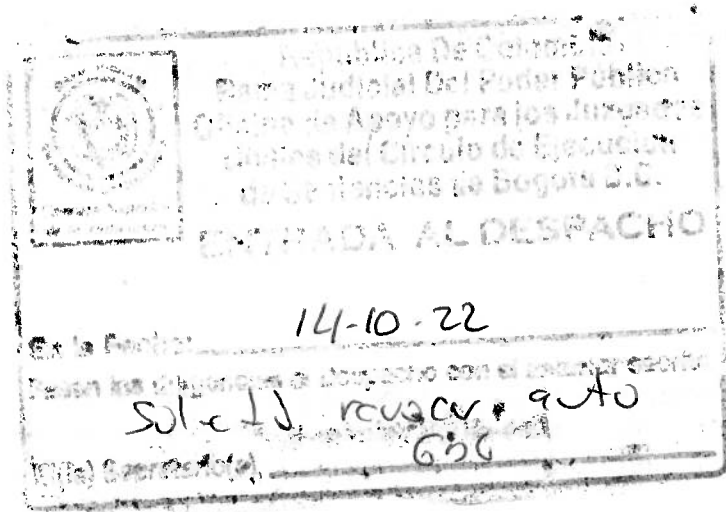 República De Colombia
Rama Judicial Del Poder Público
Oficina de Apoyo para los Juzgados
Civiles del Circuito de Ejecución
de Sentencias de Bogotá D.C.
ENTRADA AL DESPACHO
14-10-22
En la Fecha:
Pasan las diligencias al despacho con el anterior escrito
revocar auto
El(la) Secretario(a),